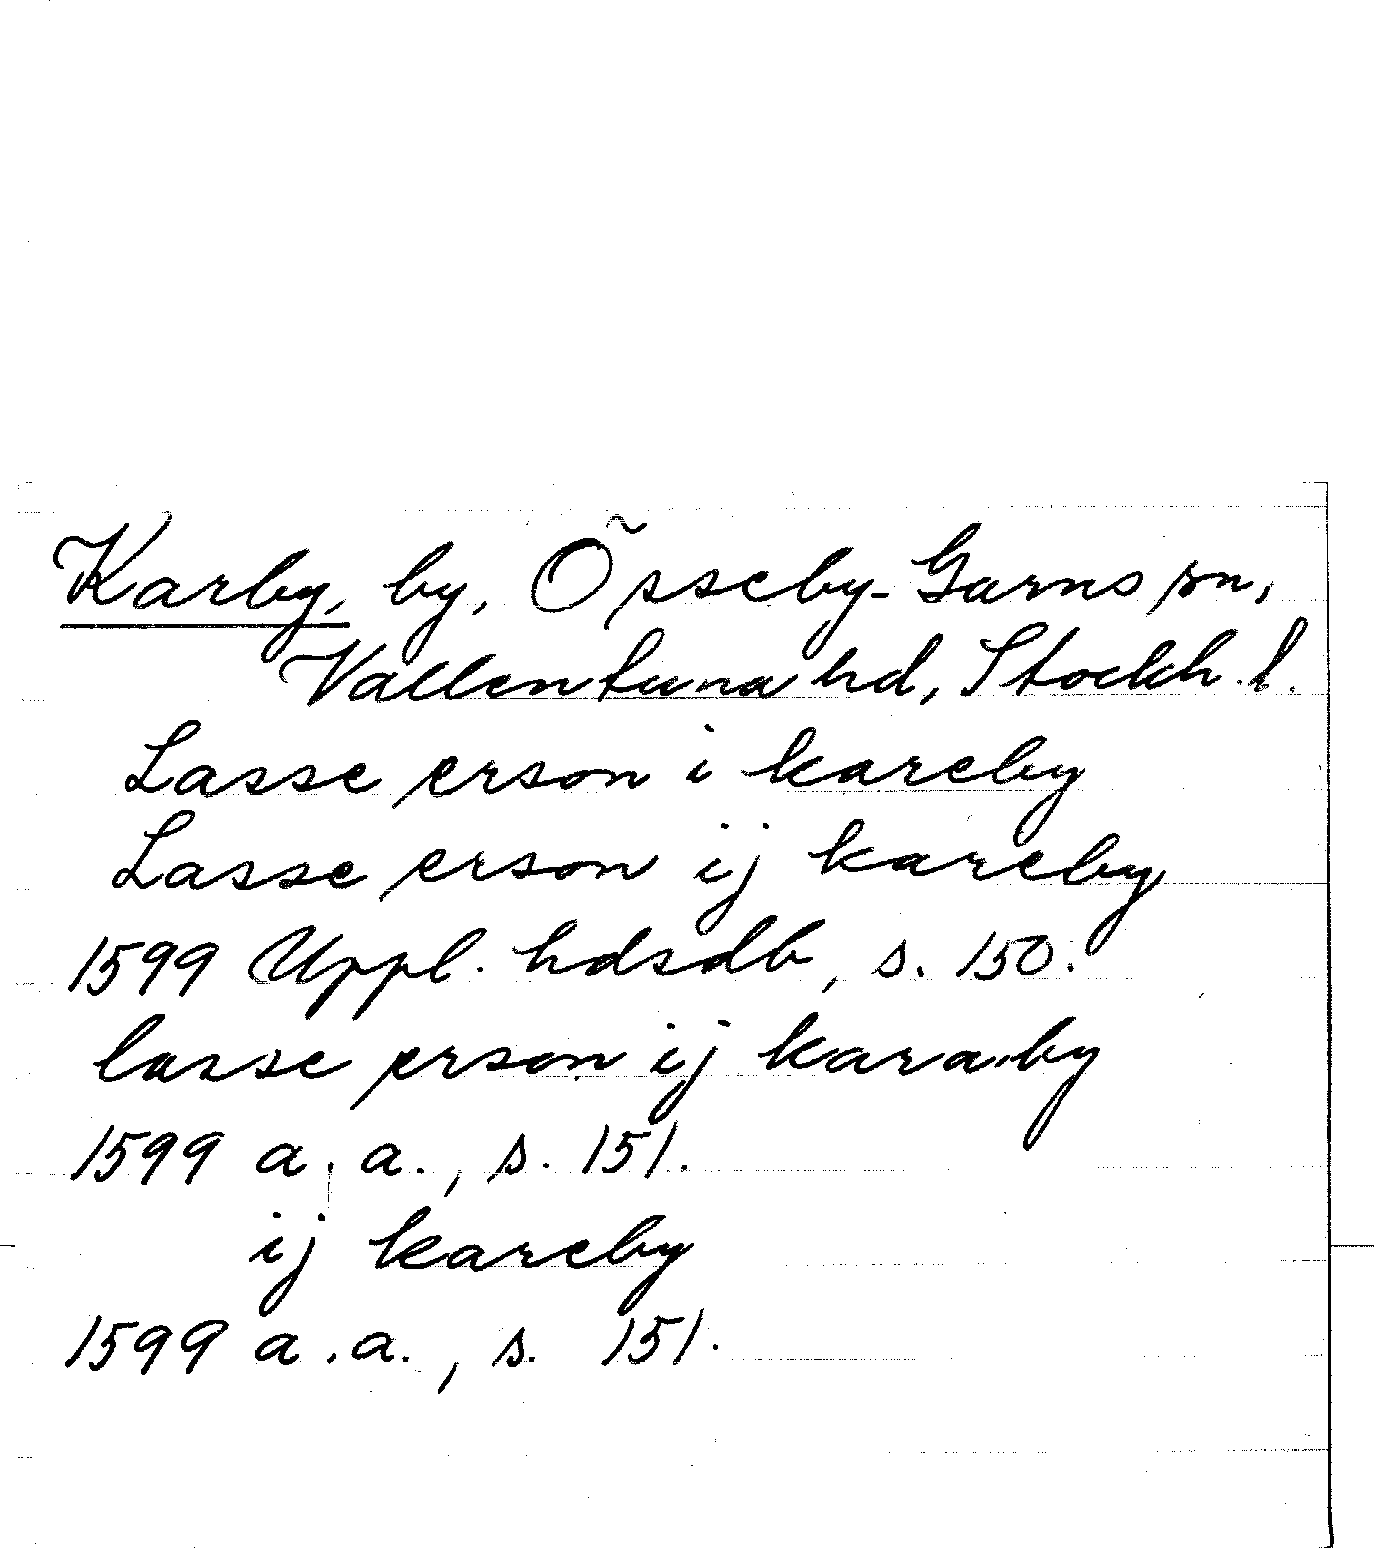 Karby, by, Össeby-Garns sn,
Vallentuna hd, Stockh. l.
Lasse person i kareby
Lasse person ij kareby
1599 Uppl. hdsdb, s. 150.
lasse person ij karaby
1599 a. a., s. 151.
ij kareby
1599 a.a., s. 151.